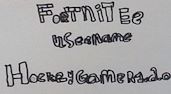 FORTNITEe
USERNAME
HockeyGamer2.0